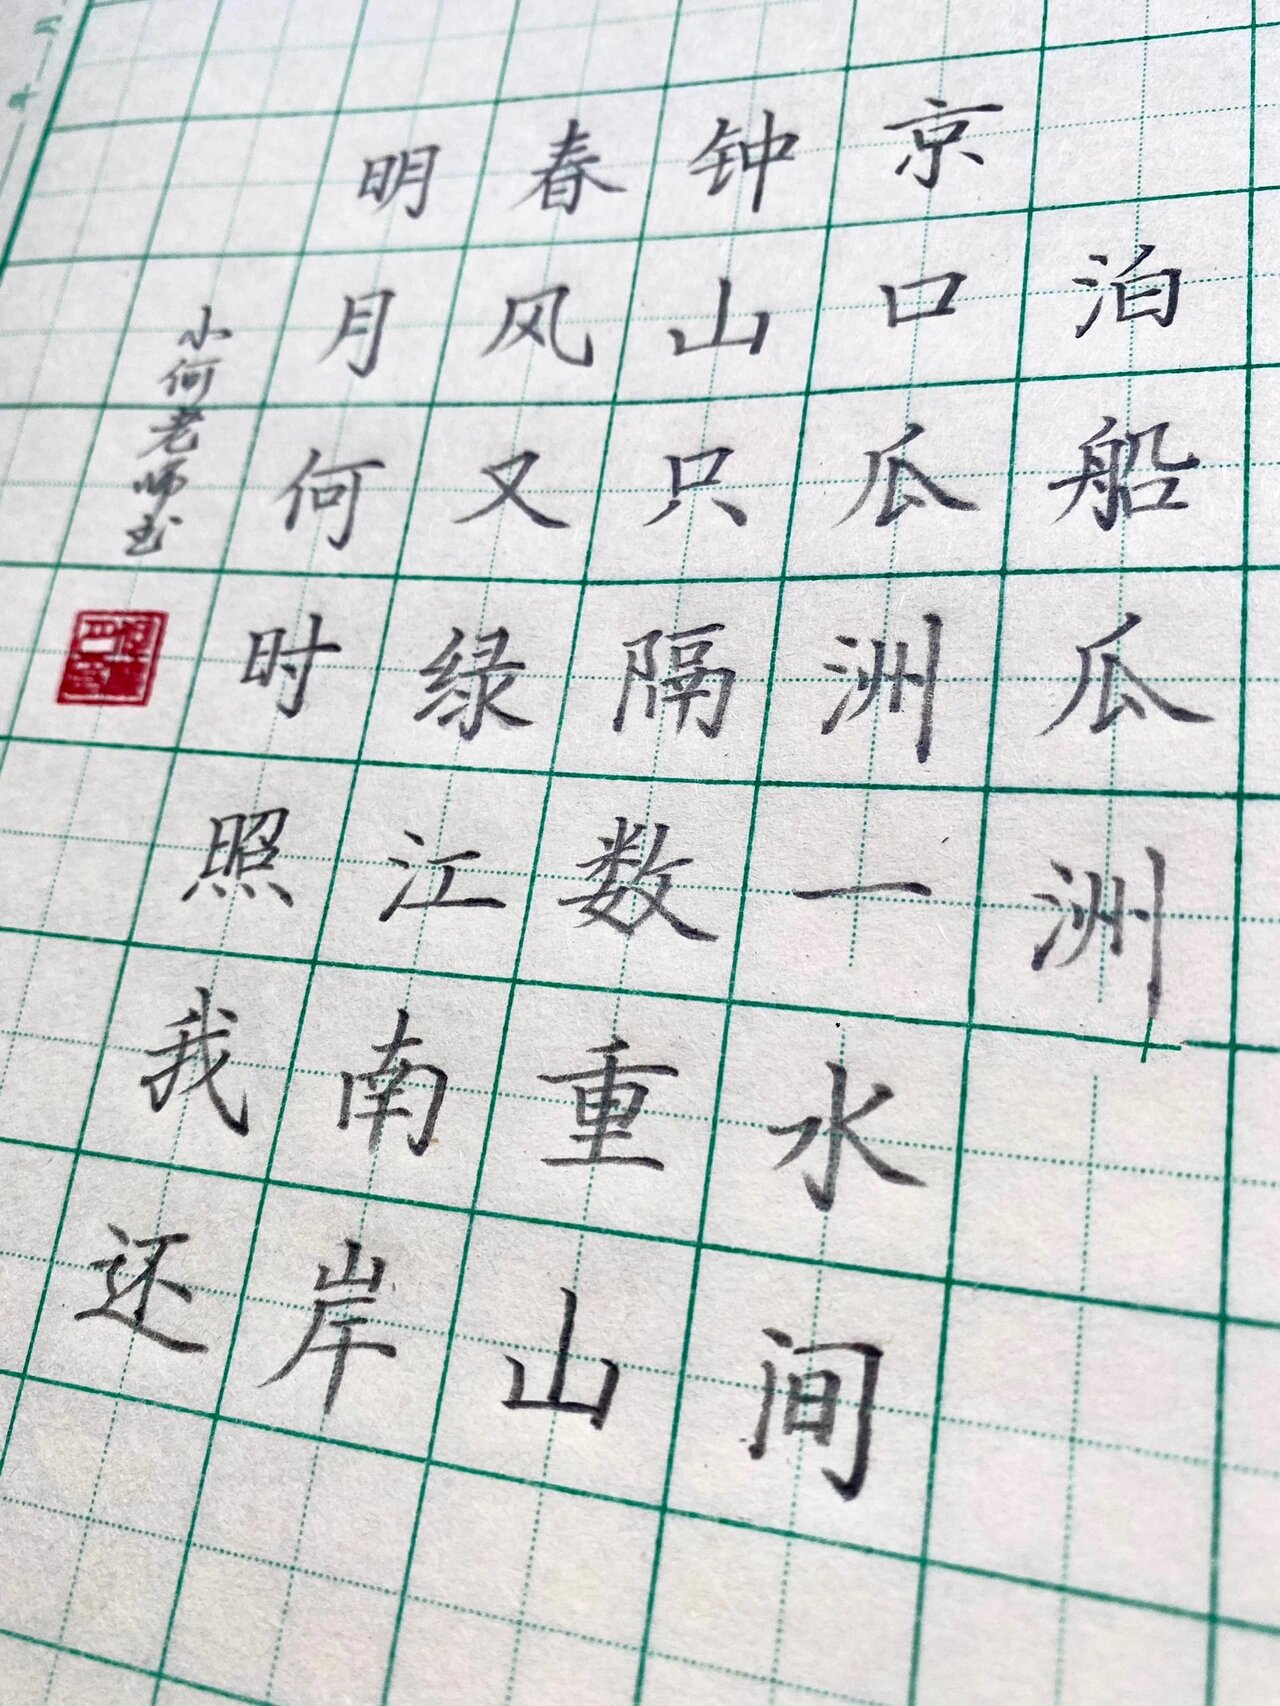 泊船瓜洲
京口瓜洲一水间
钟山只隔数重山
春风又绿江南岸
明月何时照我还
小何老师书